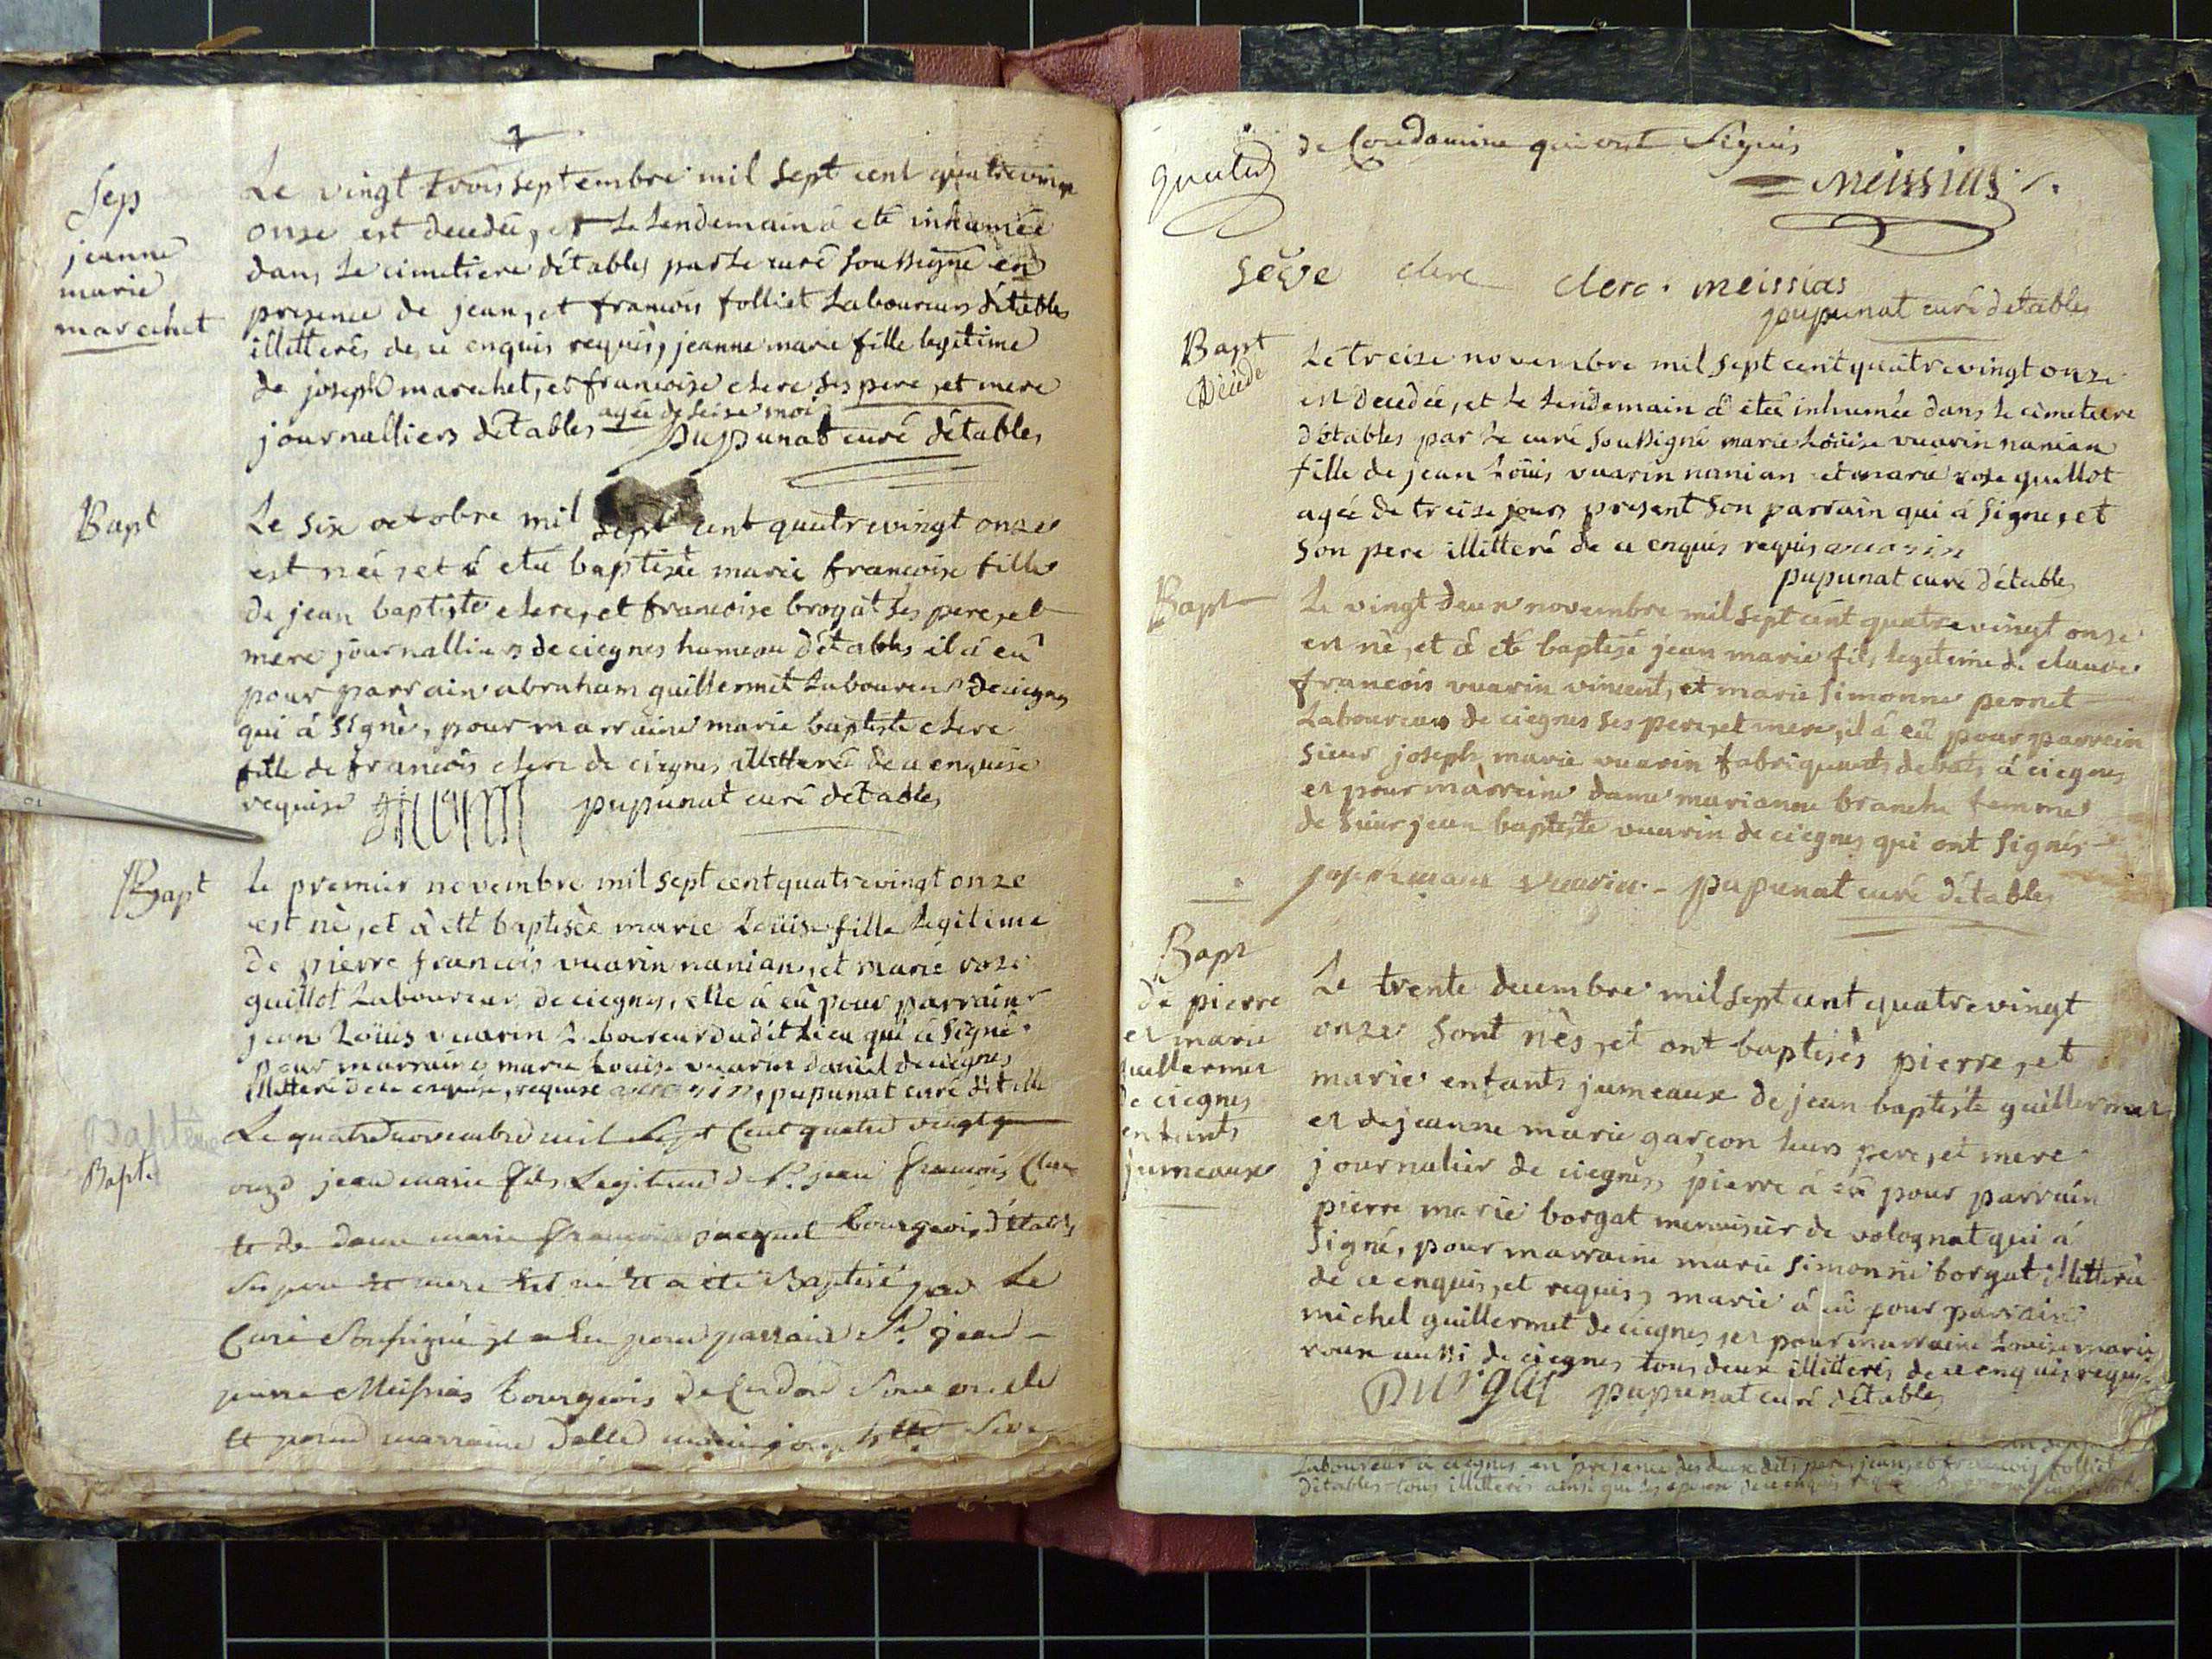 Sep
jeanne
marie
marechet
Le vingt trois septembre mil sept cent quatrevingt
onze est decedée, et le lendemain à eté inhumée
dans le cimetiere d'étables par le curé soussigné en
presence de jean, et francois folliet laboureurs d'étables
illitterés de ce enquis requis, jeanne marie fille legitime
de joseph marechet, et francoise clere ses pere, et mere
journalliers d'étables agée de seise mois pupunat curé d'étables
Bapt
Le six octobre mil sept cent quatrevingt onze
est née, et á etée baptisée marie francoise fille
de jean baptiste clere, et francoise brogat ses pere, et
mere journalliers de ciegnes hameau d'étables il á eû
pour parrain abraham guillermet laboureur de ciegnes
qui á signé, pour marraine marie baptiste clere
fille de francois clere de ciegnes illitterée de ce enquise
requise pupunat curé d'étables
Bapt
le premier novembre mil sept cent quatrevingt onze
est né, et à eté baptisèe marie Loüise fille legitime
de pierre francois vuarin nanian, et marie rose
guillot laboureur de ciegnes, elle á eû pour parrain
jean Loüis vuarin laboureur dudit lieu qui á signé.
pour marraine marie Louise vuarin daniel de ciegnes
illitteré de ce enquise, requise vuarin, pupunat curé d'étable
Baptême
Bapt.
Le quatre novembre mil sept Cent quatre vingt
onze jean marie fils Legitime de Sr. jean francois Clerc
et de dame marie francoise jacquet bourgeois d'étables
ses pere et mere Est né Et a été Baptisé par Le
Curé Soussigné il a Eu pour parrain Sr. jean
pierre Meissias bourgeois De Cerdon Son oncle
Et pour marraine delle marie josephtte Seve
de Condamine qui ont Signés
Meissias
Sève clerc clerc. meissias
pupunat curé d'etables
Bapt
Décéde
Le treize novembre mil sept cent quatrevingt onze
est decedée, et le lendemain á etée inhumée dans le cimetiere
d'étables par le curé soussigné marie Loüise vuarin nanian
fille de jean Loüis vuarin nanian et marie rose guillot
agée de treize jours present son parrain qui á signé, et
son pere illitteré de ce enquis requis vuarin
pupunat curé d'étables
Bapt
Le vingt deux novembre mil sept cent quatrevingt onze
est né, et á eté baptisé jean marie fils legitime de claude
francois vuarin vincent, et marie simonne pernet
Laboureurs de ciegnes ses pere, et mere, il á eû pour parrein
sieur joseph marie vuarin fabriquant de bats á ciegnes
et pour marreine dame marianne branche femme
de sieur jean baptiste vuarin de ciegnes qui ont signés
joseph marie vuarin. pupunat curé d'étables
Bapt
de pierre
et marie
guillermet
de ciegnes
enfants
jumeaux
Le trente decembre mil sept cent quatrevingt
onze sont nés, et ont baptisés pierre, et
marie enfants jumeaux de jean baptiste guillermet
et de jeanne marie garçon leurs pere, et mere
journalier de ciegnes, pierre á eû pour parrain
pierre marie borgat menuisier de volognat qui á
signé, pour marraine marie simonne borgat illitterée
de ce enquis, et requis, marie á eû pour parrain
michel guillermet de ciegnes, et pour marraine Louise marie
roux aussi de ciegnes tous deux illiterés de ce enquis requis
pupunat curé d'étables
Laboureur a ciegnes en presence des deux dits peres, jean, et francois folliet
d'étables tous illiterés ainsi que les epoux de ce enquis